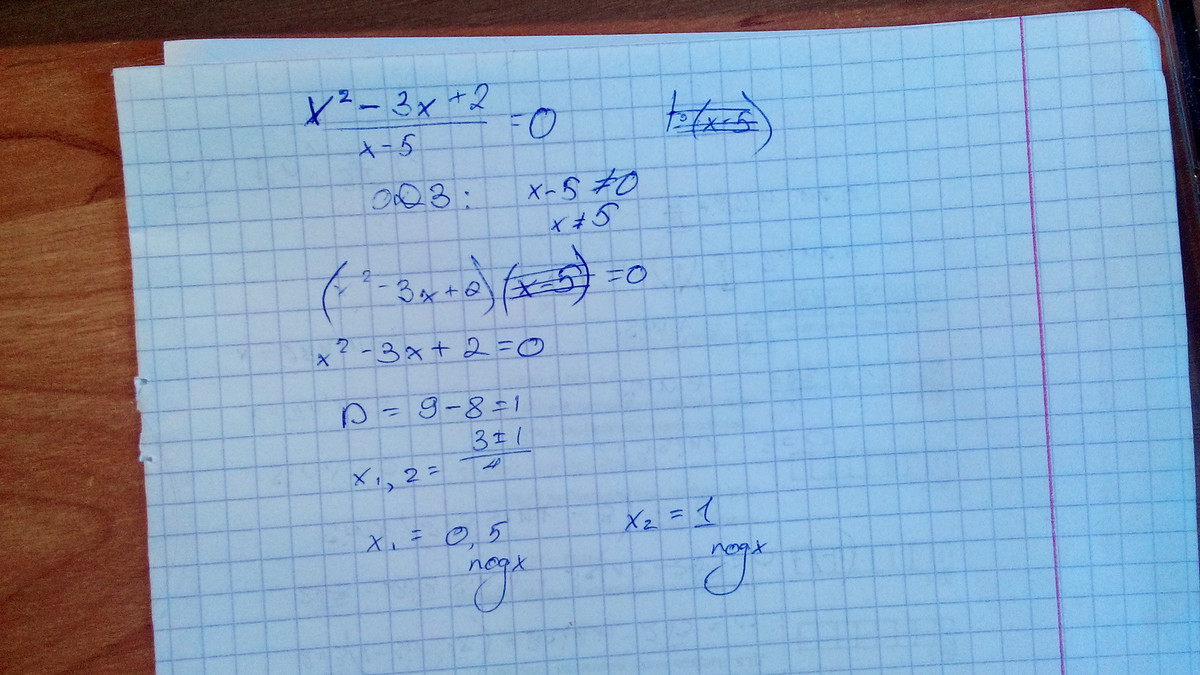 x² - 3x + 2 / x - 5 = 0
ОДЗ: x - 5 ≠ 0
x ≠ 5
(x² - 3x + 2)(x - 5) = 0
x² - 3x + 2 = 0
D = 9 - 8 = 1
x₁,₂ = 3 ± 1 / 4
x₁ = 0,5 x₂ = 1
подх подх